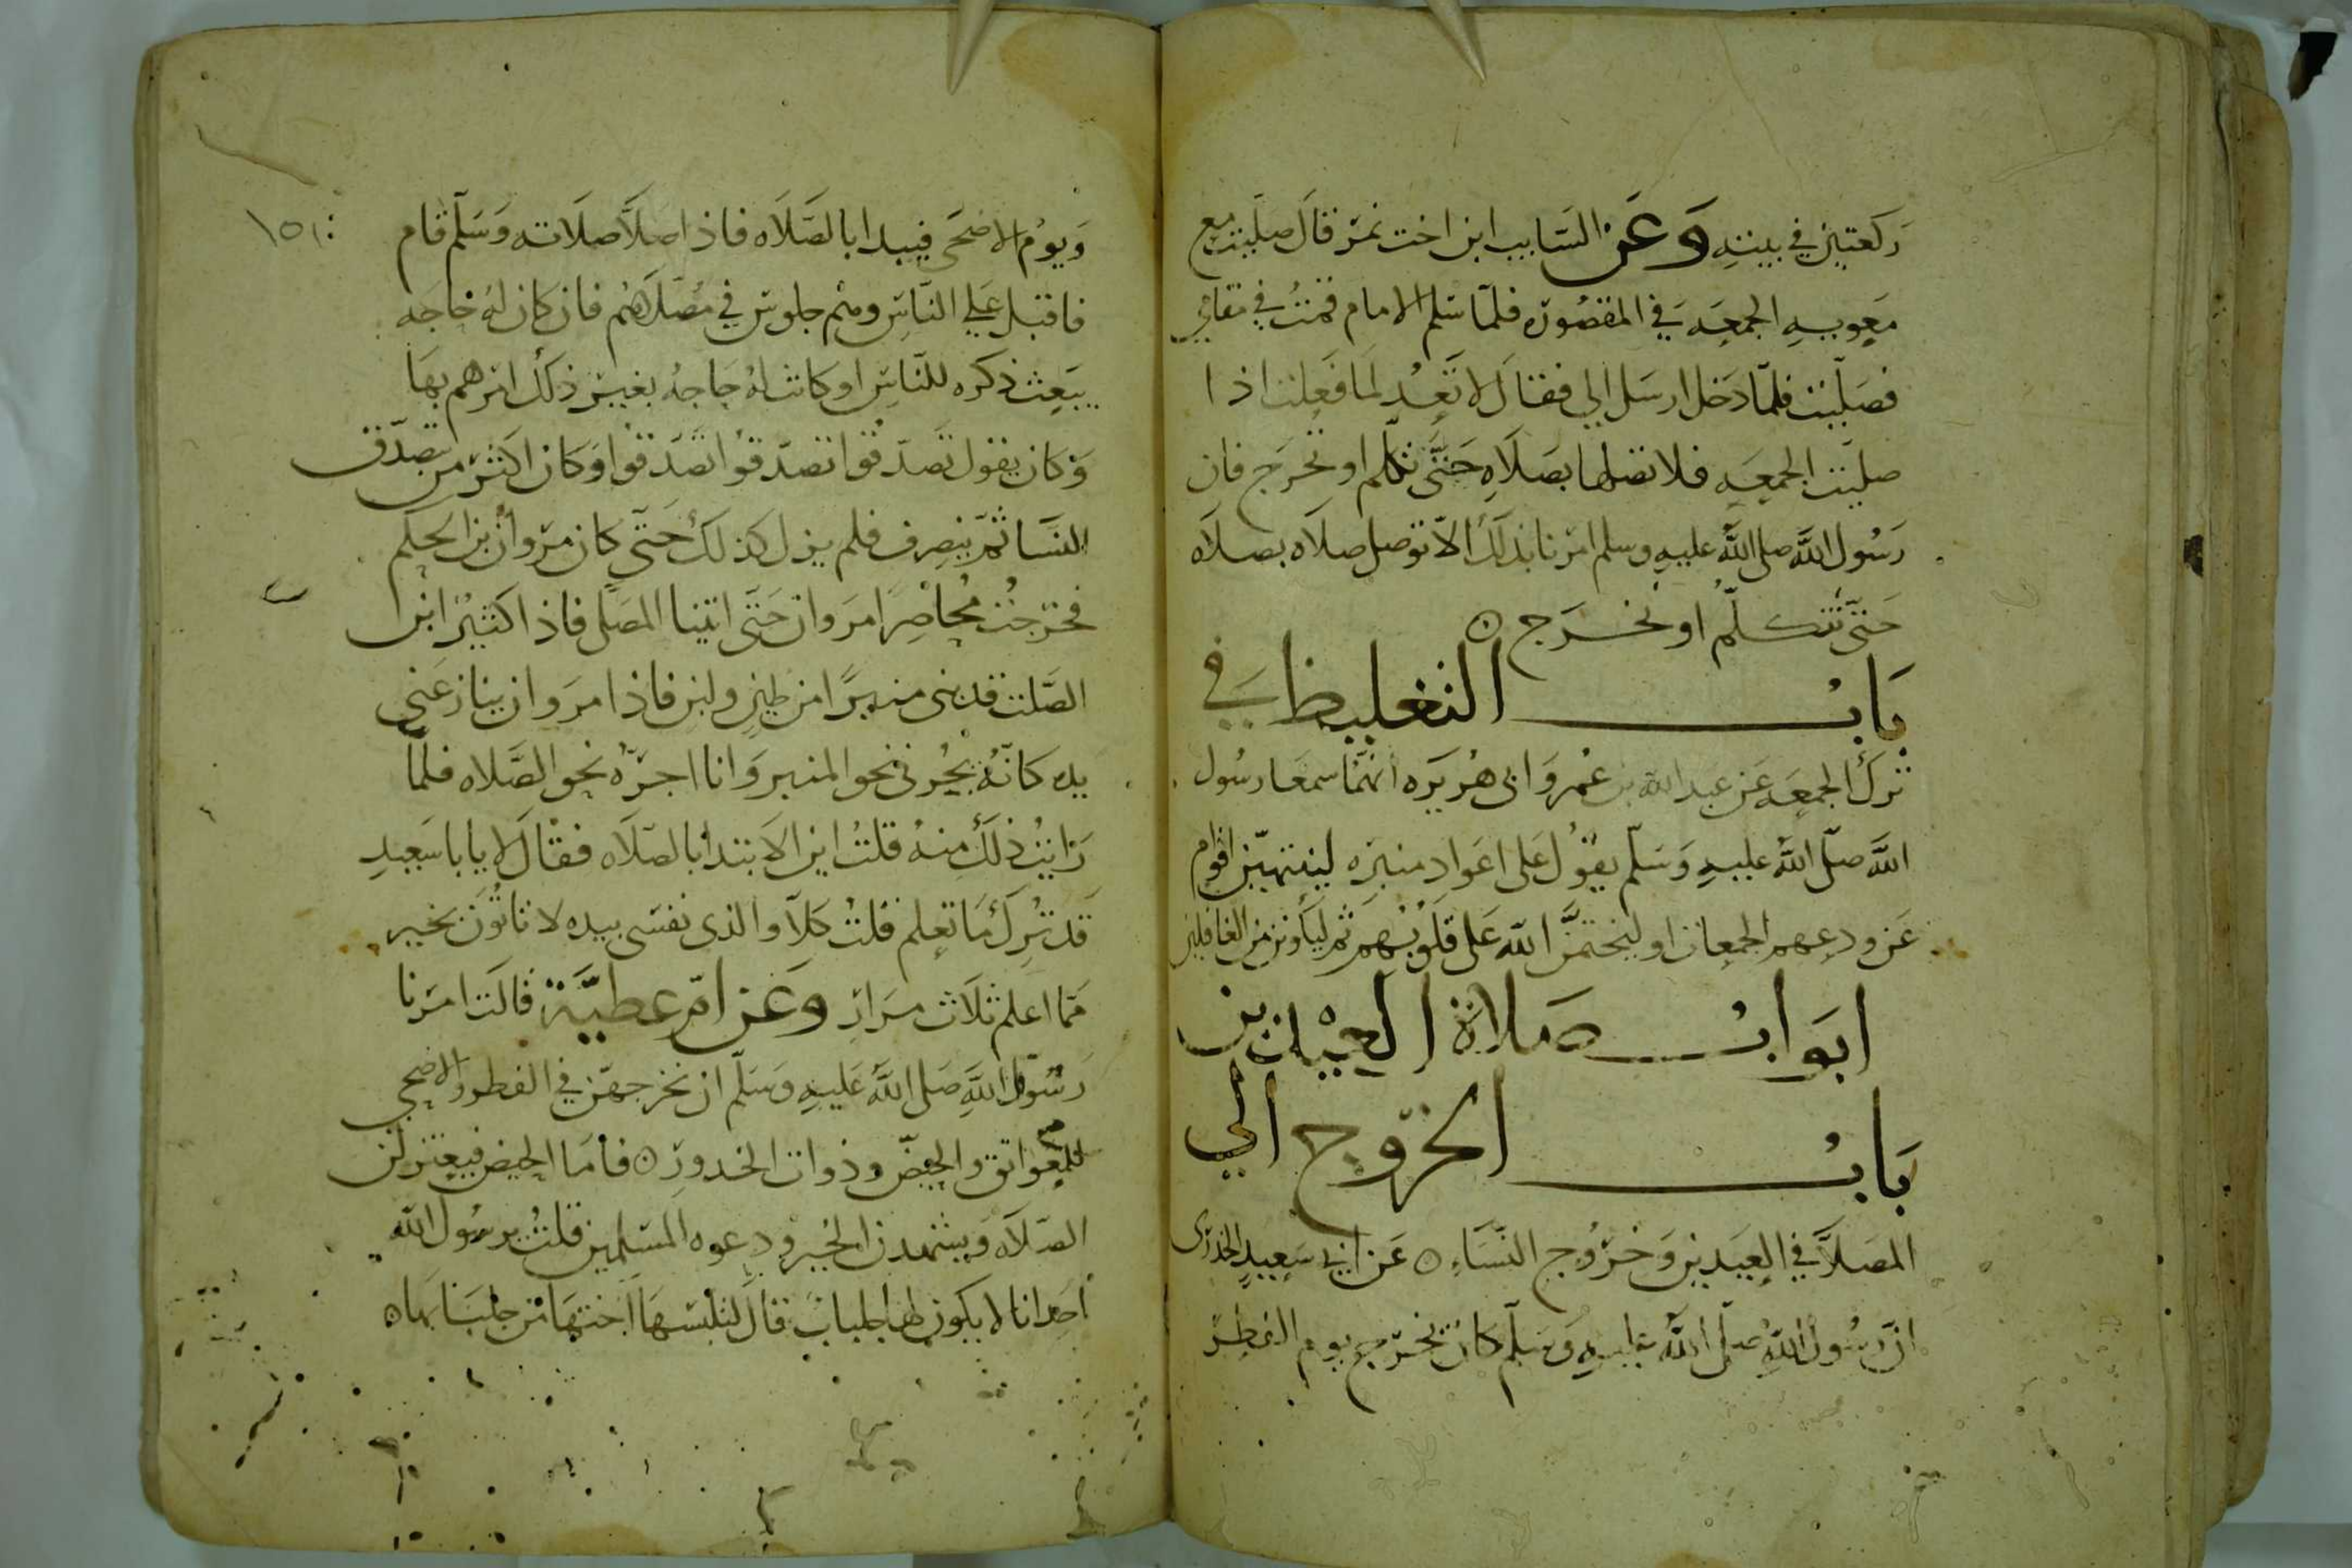 ركعتين في بيته وعن السايب ابن اخت نمر قال صليت مع
معويه الجمعه في المقصوره فلما سلم الامام قمت في مقامي
فصليت فلما دخل ارسل الي فقال لا تعد لما فعلت اذا
صليت الجمعه فلا تصلها بصلاه حتى تكلم او تخرج فان
رسول الله صلى الله عليه وسلم امرنا بذلك الا توصل صلاه بصلاه
حتى نتكلم او نخرج
باب التغليظ في
ترك الجمعه عن عبد الله بن عمر وابى هريره انهما سمعا رسول
الله صلى الله عليه وسلم يقول على اعواد منبره لينتهين اقوام
عن ودعهم الجمعات او ليختمن الله على قلوبهم ثم ليكونن من الغافلين
ابواب صلاة العيدين
باب الخروج الي
المصلا في العيدين وخروج النساء عن ابي سعيد الخدرى
ان رسول الله صلى الله عليه وسلم كان يخرج يوم الفطر
ويوم الاضحى فيبدا بالصلاه فاذا صلا صلاته وسلم قام
فاقبل علي الناس وهم جلوس في مصلاهم فان كان له حاجه
يبعث ذكره للناس او كانت له حاجه بغير ذلك امرهم بها
وكان يقول تصدقوا تصدقوا تصدقوا وكان اكثر من يتصدق
النسا ثم ينصرف فلم يزل كذلك حتى كان مروان بن الحكم
فخرجت مخاصرا مروان حتى اتينا المصلى فاذا كثير ابن
الصلت قد بنى منبرا من طين ولبن فاذا مروان ينازعنى
يده كانه يجرنى نحو المنبر وانا اجره نحو الصلاه فلما
رايت ذلك منه قلت اين الابتدا بالصلاه فقال لا يابا سعيد
قد ترك ما تعلم قلت كلا والذى نفسى بيده لا تاتون بخير
مما اعلم ثلاث مرار وعن ام عطية قالت امرنا
رسول الله صلى الله عليه وسلم ان نخرجهن في الفطر والاضحي
العواتق والحيض وذوات الخدور فاما الحيض فيعتزلن
الصلاه ويشهدن الخير ودعوه المسلمين قلت يرسول الله
احدانا لا يكون لها جلباب قال لتلبسها اختها من جلبابها